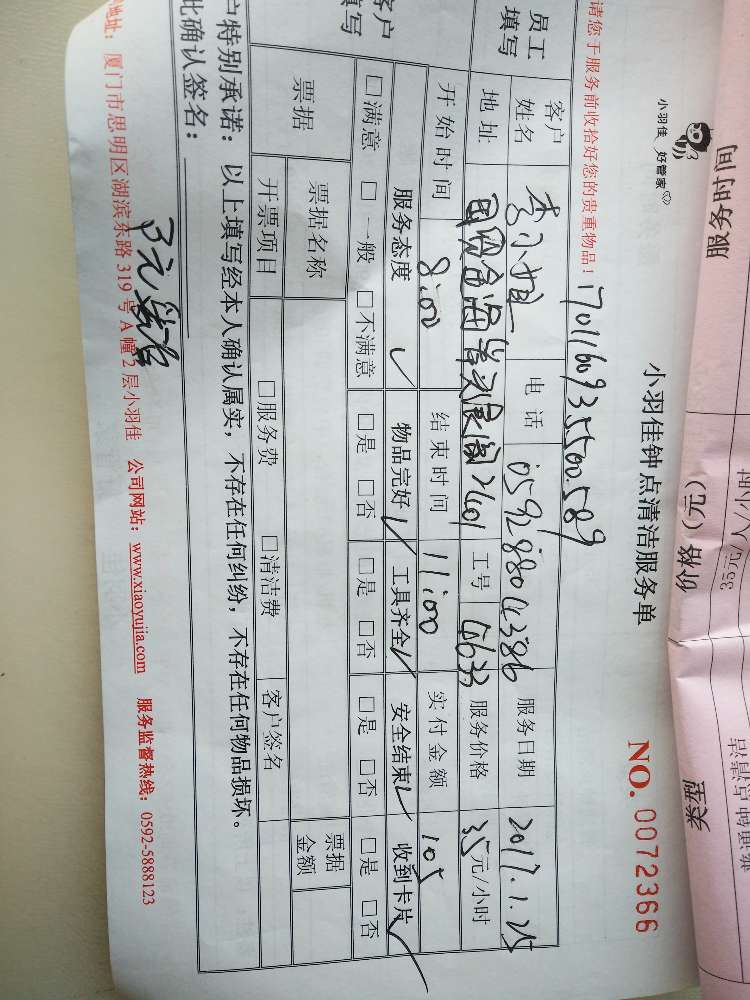 小羽佳 好管家
小羽佳钟点清洁服务单
NO. 0072366
请您于服务前收拾好您的贵重物品！
1701160935500589
员工填写
客户姓名 李小姐 电话 05928804386 服务日期 2017.1.25
地址 2401 工号 4633 服务价格 35元/小时
开始时间 8:00 结束时间 11:00 实付金额 105
客户填写
服务态度 ✓ 物品完好 ✓ 工具齐全 ✓ 安全结束 ✓ 收到卡片 ✓
□满意 □一般 □不满意 □是 □否 □是 □否 □是 □否 □是 □否
票据 票据名称 票据金额
开票项目 □服务费 □清洁费 客户签名
户特别承诺：以上填写经本人确认属实，不存在任何纠纷，不存在任何物品损坏。
此确认签名：
地址：厦门市思明区湖滨东路319号A幢2层小羽佳 公司网站：www.xiaoyujia.com 服务监督热线：0592-5888123
服务时间
价格(元)
35元/人/小时
类型
钟点清洁